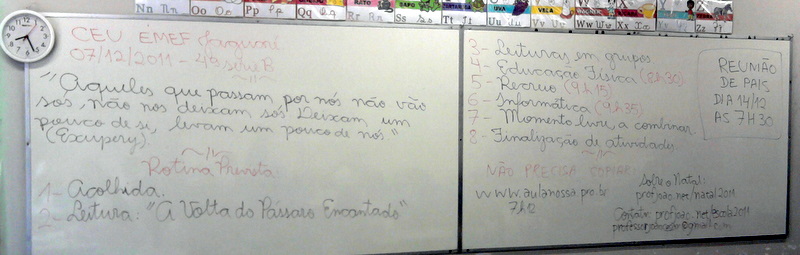 Nn Oo Pp Qq Rr Ss Tt Uu Vv Ww Xx Zz
RATO SAPO UVA VACA
CEU EMEF Jaguaré
07/12/2011 - 4ª série B
"Aqueles que passam por nós não vão
sós, não nos deixam sós. Deixam um
pouco de si, levam um pouco de nós."
(Exupery).
Rotina Prevista
1- Acolhida.
2- Leitura: "A Volta do Pássaro Encantado"
3- Leituras em grupos
4- Educação Física (8h30)
5- Recreio (9h15)
6- Informática (9h35)
7- Momento livre, a combinar.
8- Finalização de atividades.
NÃO PRECISA COPIAR!
www.aulanossa.pro.br
7h2
Sobre o Natal:
profjoao.net/natal2011
Contato: profjoao.net/escola2011
@gmail.com
REUNIÃO
DE PAIS
DIA 14/12
AS 7H30